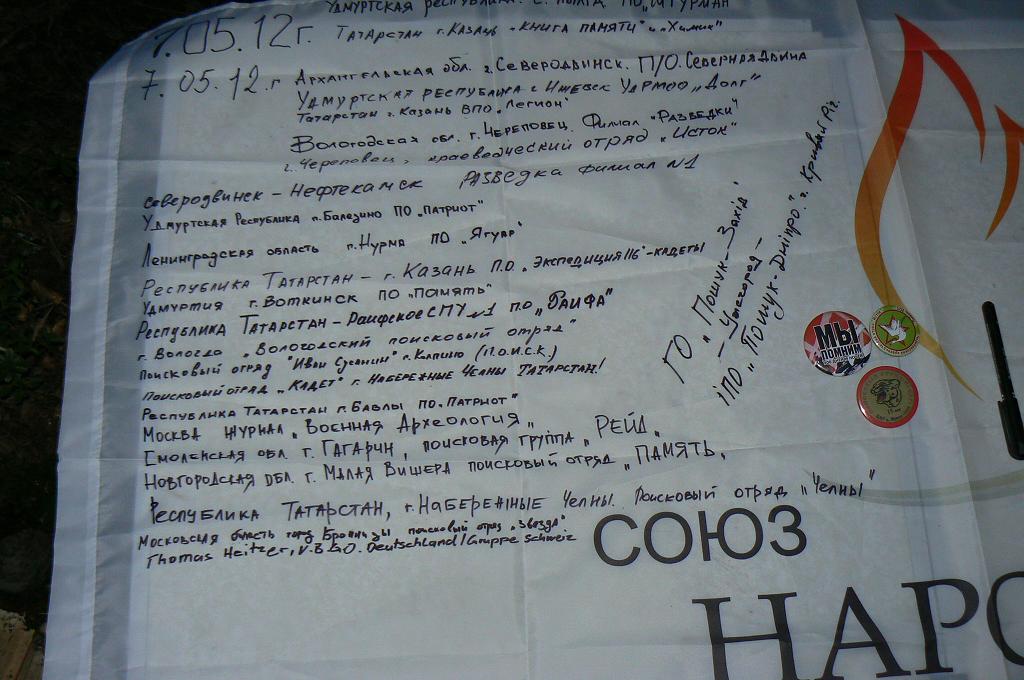 Удмуртская республика. с.
7.05.12г. Татарстан г. Казань "Книга памяти" и "Химик"
7.05.12.г Архангельская обл. г. Северодвинск. П/О. Северная Двина
Удмуртская республика г. Ижевск УДРМОО "Долг"
Татарстан г. Казань ВПО "Легион"
Вологодская обл. г. Череповец. Филиал "Разведки"
г. Череповец, краеведческий отряд "Исток"
Северодвинск - Нефтекамск Разведка филиал N1
Удмуртская Республика п. Балезино ПО "Патриот"
Ленинградская область п. Нурма ПО "Ягуар"
Республика Татарстан - г. Казань П.О. "Экспедиция 116" - кадеты
Удмуртия г. Воткинск ПО "Память"
Республика Татарстан - Раифское СПУ N1 п.о "Раифа"
г. Вологда "Вологодский поисковый отряд"
поисковый отряд "Иван Сусанин" г. Колпино (П.О.И.С.К.)
Поисковый отряд "Кадет" г. Набережные Челны Татарстан!
Республика Татарстан г. Бавлы по. "Патриот"
Москва журнал "Военная Археология"
Смоленская обл. г. Гагарин, поисковая группа "Рейд"
Новгородская обл. г. Малая Вишера поисковый отряд "Память"
Республика Татарстан, г. Набережные Челны. Поисковый отряд "Челны"
Московская область город Бронницы поисковый отряд "Звезда"
Thomas Heitzer, V.B.G.O. Deutschland/Gruppe Schweiz
ГО "Пошук-Захід"
- Ужгород -
ІПО "Пошук-Дніпро" г. Кривий Ріг.
МЫ
ПОМНИМ
СОЮЗ
НАРО